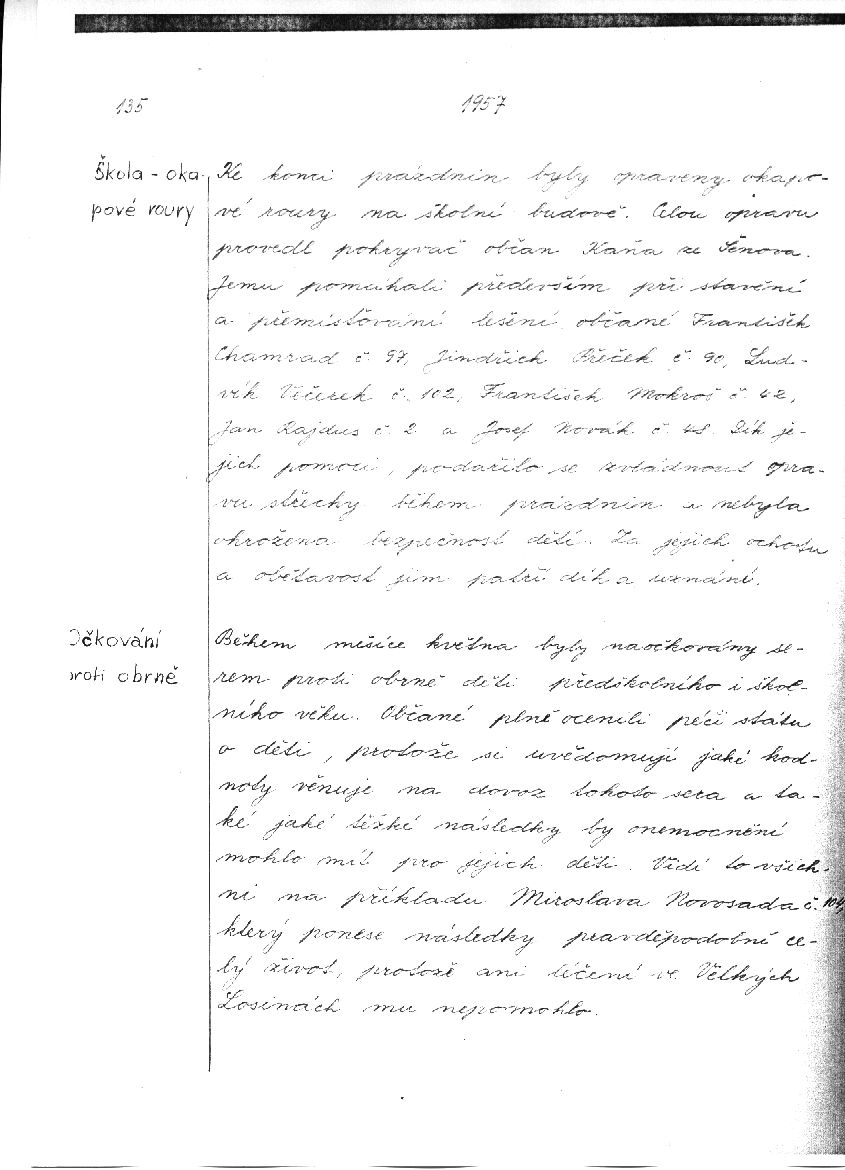 135
1957
Škola - oka-
pové roury
Ke konci prázdnin byly opraveny okapo-
vé roury na školní budově. Celou opravu
provedl pokryvač občan Kaňa ze Šenova.
Jemu pomáhali především při stavění
a přemisťování lešení občané František
Chamrad č. 97, Jindřich Přeček č. 90, Lud-
vík Věčerek č. 102, František Mokroš č. 42,
Jan Kajdus č. 2 a Josef Novák č. 48. Dík je-
jich pomoci, podařilo se zvládnout opra-
vu střechy během prázdnin a nebyla
ohrožena bezpečnost dětí. Za jejich ochotu
a obětavost jim patří dík a uznání.
Očkování
proti obrně
Během měsíce května byly naočkovány se-
rem proti obrně děti předškolního i škol-
ního věku. Občané plně ocenili péči státu
o děti, protože si uvědomují jaké hod-
noty věnuje na dovoz tohoto sera a ta-
ké jaké těžké následky by onemocnění
mohlo mít pro jejich děti. Vidí to všich-
ni na příkladu Miroslava Novosada č. 104,
který ponese následky pravděpodobně ce-
lý život, protože ani léčení ve Velkých
Losinách mu nepomohlo.